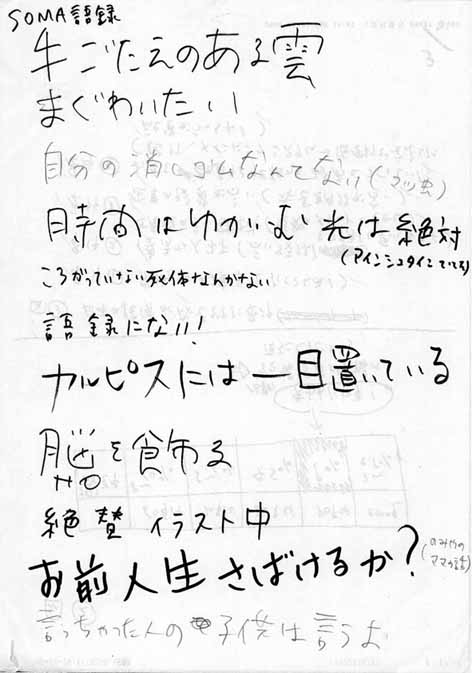 SOMA語録
3
手ごたえのある雲
まぐわいたい
自分の消しゴムなんてない(ブッ虫)
時間はゆがいむ 光は絶対
(アインシュタインでいてる)
ころがっていない死体なんかない
語録にない!
カルピスには一目置いている
脳を飾る
絶賛イラスト中
お前人生さばけるか?
(のみやの
ママの話)
言っちゃった人の子供は言うよ